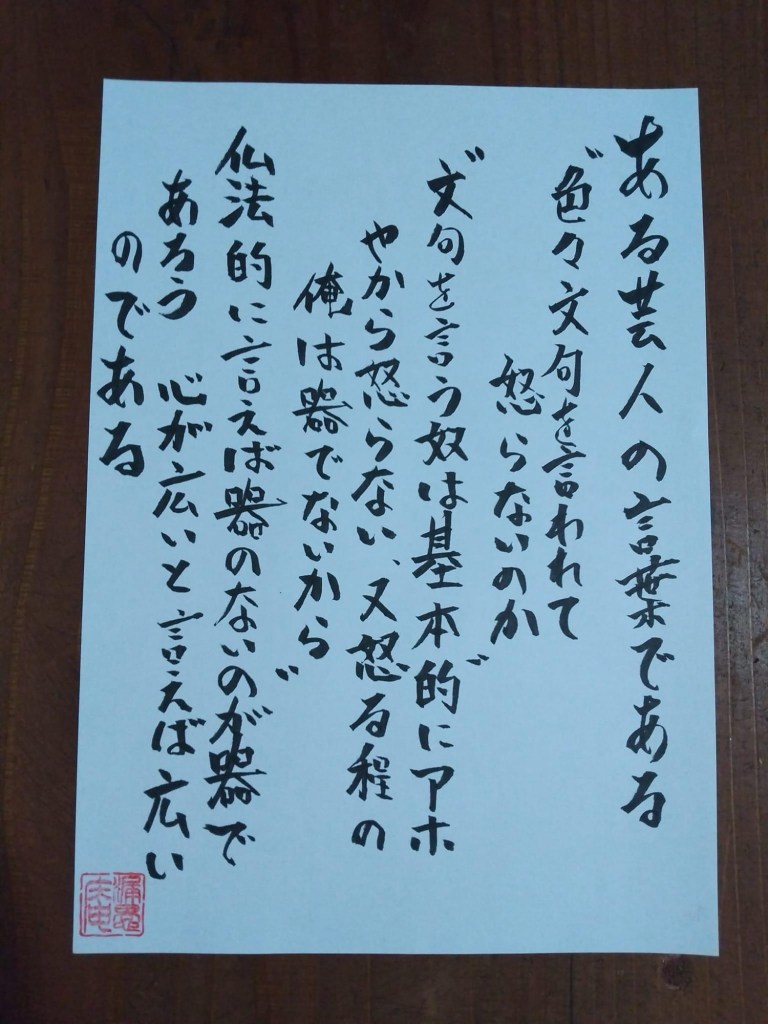 ある芸人の言葉である
〝色々文句を言われて
怒らないのか〟
〝文句を言う奴は基本的にアホ
やから怒らない、又怒る程の
俺は器でないから〟
仏法的に言えば器のないのが器で
あろう 心が広いと言えば広い
のである